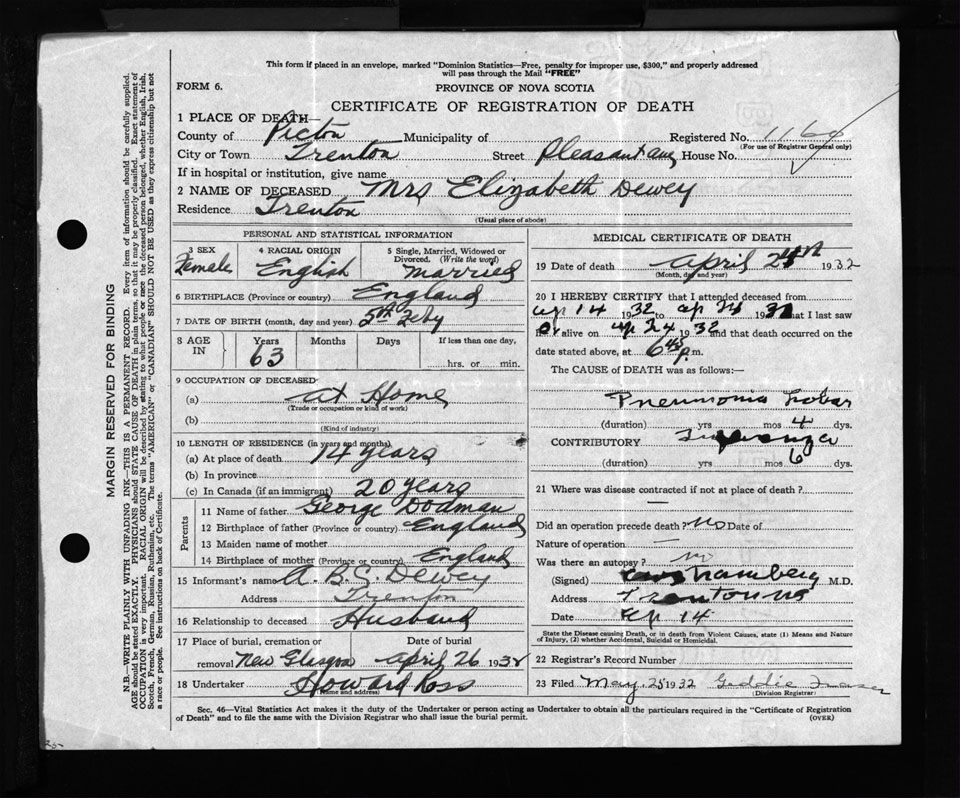 This form if placed in an envelope, marked "Dominion Statistics—Free, penalty for improper use, $300," and properly addressed
will pass through the Mail "FREE"
FORM 6.
PROVINCE OF NOVA SCOTIA
CERTIFICATE OF REGISTRATION OF DEATH
1 PLACE OF DEATH—
County of Pictou Municipality of Registered No. 1164
(For use of Registrar General only)
City or Town Trenton Street Pleasant ave House No.
If in hospital or institution, give name
2 NAME OF DECEASED Mrs Elizabeth Dewey
Residence Trenton
(Usual place of abode)
PERSONAL AND STATISTICAL INFORMATION
3 SEX 4 RACIAL ORIGIN 5 Single, Married, Widowed or
Divorced. (Write the word)
Female English Married
6 BIRTHPLACE (Province or country) England
7 DATE OF BIRTH (month, day and year) 5th Feby
8 AGE IN Years Months Days If less than one day,
63 hrs. or min.
9 OCCUPATION OF DECEASED
(a) At Home
(Trade or occupation or kind of work)
(b)
(Kind of industry)
10 LENGTH OF RESIDENCE (in years and months)
(a) At place of death 14 years
(b) In province
(c) In Canada (if an immigrant) 20 years
Parents
11 Name of father George Dodman
12 Birthplace of father (Province or country) England
13 Maiden name of mother
14 Birthplace of mother (Province or country) England
15 Informant's name A. B. S. Dewey
Address Trenton
16 Relationship to deceased Husband
17 Place of burial, cremation or Date of burial
removal New Glasgow April 26 1932
18 Undertaker Howard Ross
(Name and address)
MEDICAL CERTIFICATE OF DEATH
19 Date of death April 24th 1932
(Month, day and year)
20 I HEREBY CERTIFY that I attended deceased from
ap 14 1932 to ap 24 1932 that I last saw
er alive on ap 24 1932 and that death occurred on the
date stated above, at 6 40 p.m.
The CAUSE of DEATH was as follows:—
Pneumonia Lobar
(duration) yrs mos 4 dys.
CONTRIBUTORY Influenza
(duration) yrs mos 6 dys.
21 Where was disease contracted if not at place of death?
—
Did an operation precede death? No Date of
Nature of operation —
Was there an autopsy? No
(Signed) M.D.
Address Trenton NS
Date Ap 14
State the Disease causing Death, or in death from Violent Causes, state (1) Means and Nature
of Injury, (2) whether Accidental, Suicidal or Homicidal.
22 Registrar's Record Number
23 Filed May. 25 1932 Geddie Fraser
(Division Registrar)
Sec. 46—Vital Statistics Act makes it the duty of the Undertaker or person acting as Undertaker to obtain all the particulars required in the "Certificate of Registration
of Death" and to file the same with the Division Registrar who shall issue the burial permit.
(OVER)
MARGIN RESERVED FOR BINDING
N.B.—WRITE PLAINLY WITH UNFADING INK—THIS IS A PERMANENT RECORD. Every item of information should be carefully supplied.
AGE should be stated EXACTLY. PHYSICIANS should STATE CAUSE OF DEATH in plain terms, so that it may be properly classified. Exact statement of
OCCUPATION is very important. RACIAL ORIGIN will be described by stating to what people or race the deceased person belonged, whether English, Irish,
Scotch, French, German, Russian, Ruthenian, etc. The terms "AMERICAN" or "CANADIAN" SHOULD NOT BE USED as they express citizenship but not
a race or people. See instructions on back of Certificate.